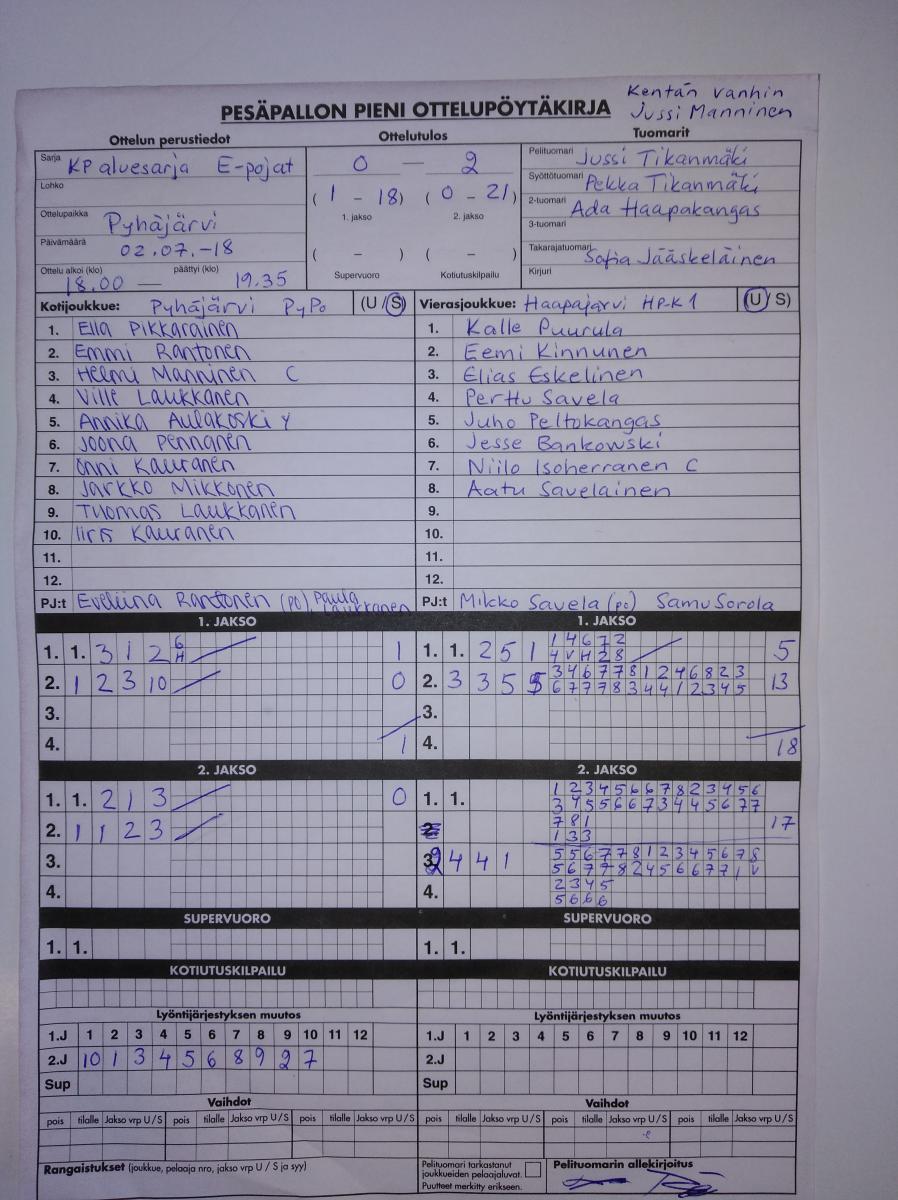 Kentän vanhin
Jussi Manninen
PESÄPALLON PIENI OTTELUPÖYTÄKIRJA
Ottelun perustiedot Ottelutulos Tuomarit
Sarja KP aluesarja E-pojat
Lohko
Ottelupaikka Pyhäjärvi
Päivämäärä 02.07.-18
Ottelu alkoi (klo) päättyi (klo)
18.00 — 19.35
0 — 2
(1 - 18) (0 - 21)
1. jakso 2. jakso
( - ) ( - )
Supervuoro Kotiutuskilpailu
Pelituomari Jussi Tikanmäki
Syöttötuomari Pekka Tikanmäki
2-tuomari Ada Haapakangas
3-tuomari
Takarajatuomari
Kirjuri Sofia Jääskeläinen
Kotijoukkue: Pyhäjärvi PyPo (U / S)
1. Ella Pikkarainen
2. Emmi Rantonen
3. Helmi Manninen C
4. Ville Laukkanen
5. Annika Aulakoski Y
6. Joona Pennanen
7. Onni Kauranen
8. Jarkko Mikkonen
9. Tuomas Laukkanen
10. Iiris Kauranen
11.
12.
PJ:t Eveliina Rantonen (po), Paula Laukkanen
Vierasjoukkue: Haapajärvi HP-K 1 (U / S)
1. Kalle Puurula
2. Eemi Kinnunen
3. Elias Eskelinen
4. Perttu Savela
5. Juho Peltokangas
6. Jesse Bankowski
7. Niilo Isoherranen C
8. Aatu Savelainen
9.
10.
11.
12.
PJ:t Mikko Savela (po) Samu Sorola
1. JAKSO
1. 1. 3 1 2 6 H 1
2. 1 2 3 10 0
3.
4. 1
1. JAKSO
1 4 6 7 2
1. 1. 2 5 1 5
4 V H 2 8
3 4 6 7 7 8 1 2 4 6 8 2 3
2. 3 3 5 5 13
6 7 7 7 8 3 4 4 1 2 3 4 5
3.
4. 18
2. JAKSO
1. 1. 2 1 3 0
2. 1 1 2 3
3.
4.
2. JAKSO
1 2 3 4 5 6 6 7 8 2 3 4 5 6
1. 1.
3 4 5 5 6 6 7 3 4 4 5 6 7 7
7 8 1
17
1 3 3
5 5 6 7 7 8 1 2 3 4 5 6 7 8
2 4 4 1
5 6 7 7 8 2 4 5 6 6 7 7 1 V
2 3 4 5
4.
5 6 6 6
SUPERVUORO
1. 1.
SUPERVUORO
1. 1.
KOTIUTUSKILPAILU
KOTIUTUSKILPAILU
Lyöntijärjestyksen muutos
1.J 1 2 3 4 5 6 7 8 9 10 11 12
2.J 10 1 3 4 5 6 8 9 2 7
Sup
Lyöntijärjestyksen muutos
1.J 1 2 3 4 5 6 7 8 9 10 11 12
2.J
Sup
Vaihdot
pois tilalle Jakso vrp U / S pois tilalle Jakso vrp U / S pois tilalle Jakso vrp U / S
Vaihdot
pois tilalle Jakso vrp U / S pois tilalle Jakso vrp U / S pois tilalle Jakso vrp U / S
Rangaistukset (joukkue, pelaaja nro, jakso vrp U / S ja syy)
Pelituomari tarkastanut
joukkueiden pelaajaluvat.
Puutteet merkitty erikseen.
Pelituomarin allekirjoitus